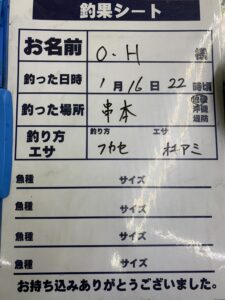 釣果シート
お名前 O.H 様
釣った日時 1月16日22時頃
釣った場所 串本 地磯 沖磯 堤防
釣り方 エサ
釣り方 エサ フカセ オキアミ
魚種 サイズ
魚種 サイズ
魚種 サイズ
魚種 サイズ
お持ち込みありがとうございました。